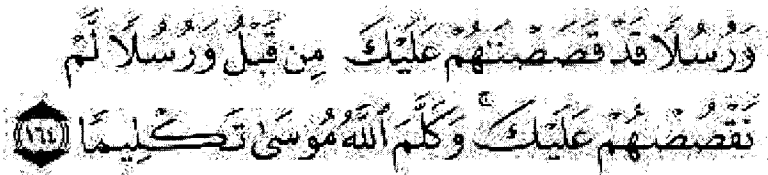 وَرُسُلًا قَدْ قَصَصْنَٰهُمْ عَلَيْكَ مِن قَبْلُ وَرُسُلًا لَّمْ
نَقْصُصْهُمْ عَلَيْكَ ۚ وَكَلَّمَ ٱللَّهُ مُوسَىٰ تَكْلِيمًا ١٦٤